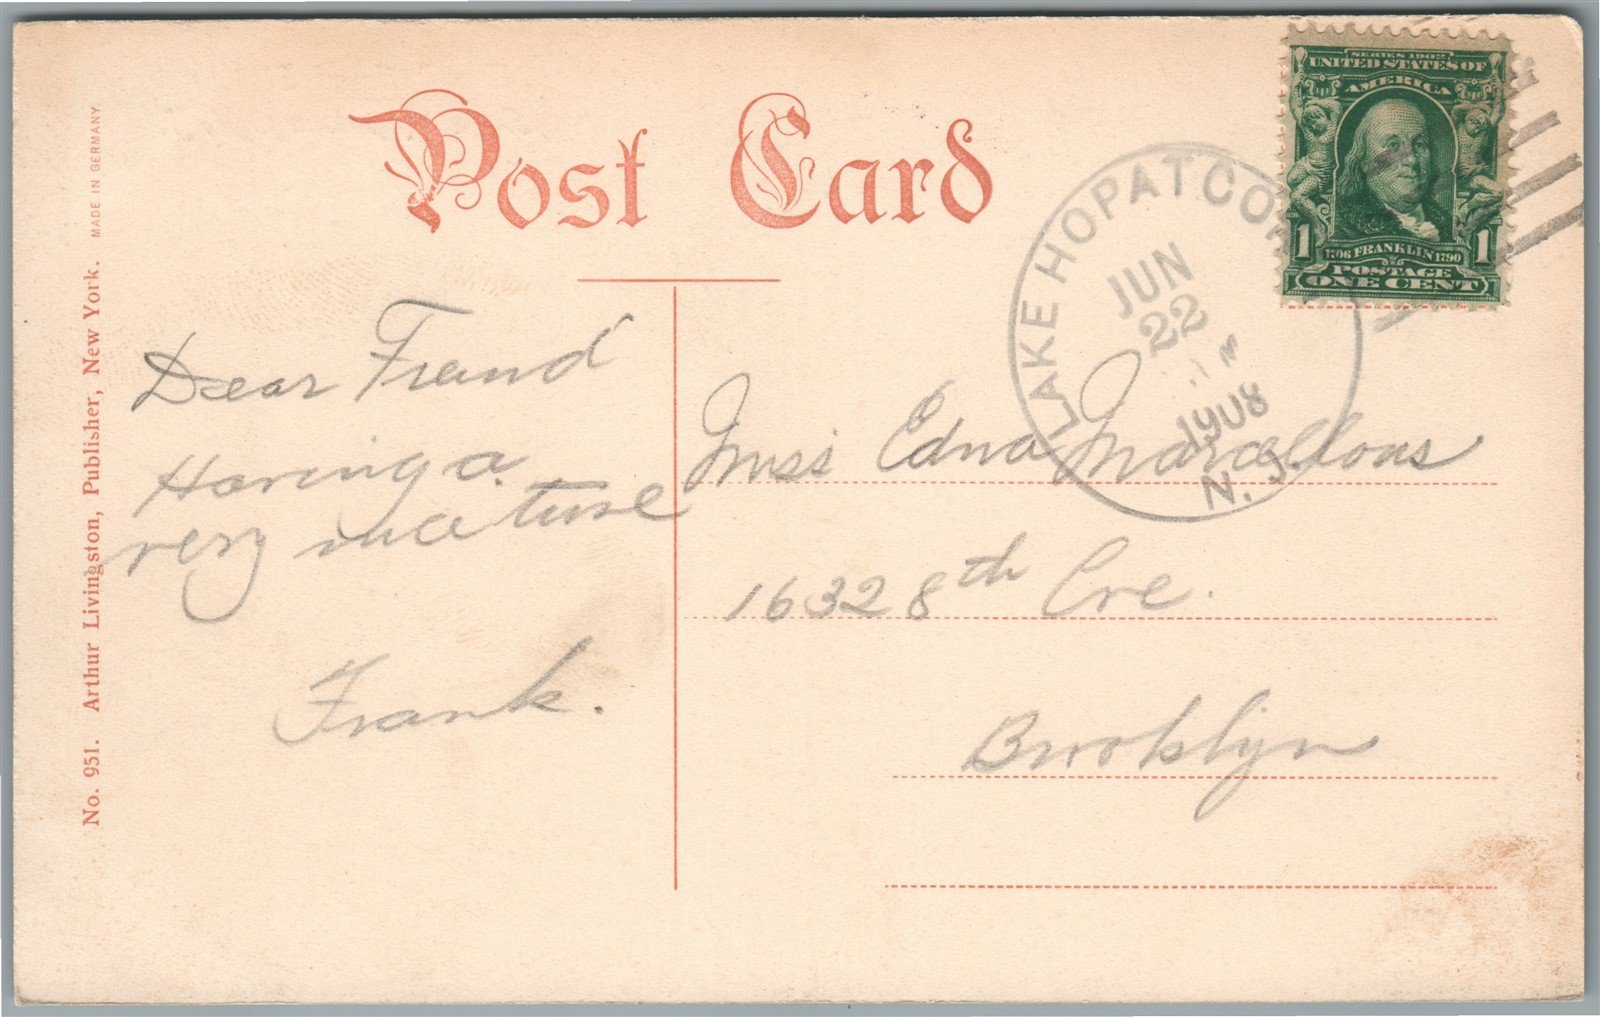 Post Card
MADE IN GERMANY
No. 951. Arthur Livingston, Publisher, New York.
SERIES 1902
UNITED STATES OF
AMERICA
1706 FRANKLIN 1790
1 1
POSTAGE
ONE CENT
LAKE HOPATCO
JUN
22
1908
N. J.
Dear Freind
Having a
very nice time
Frank.
Miss Edna Marcellous
1632 8th Ave.
Brooklyn